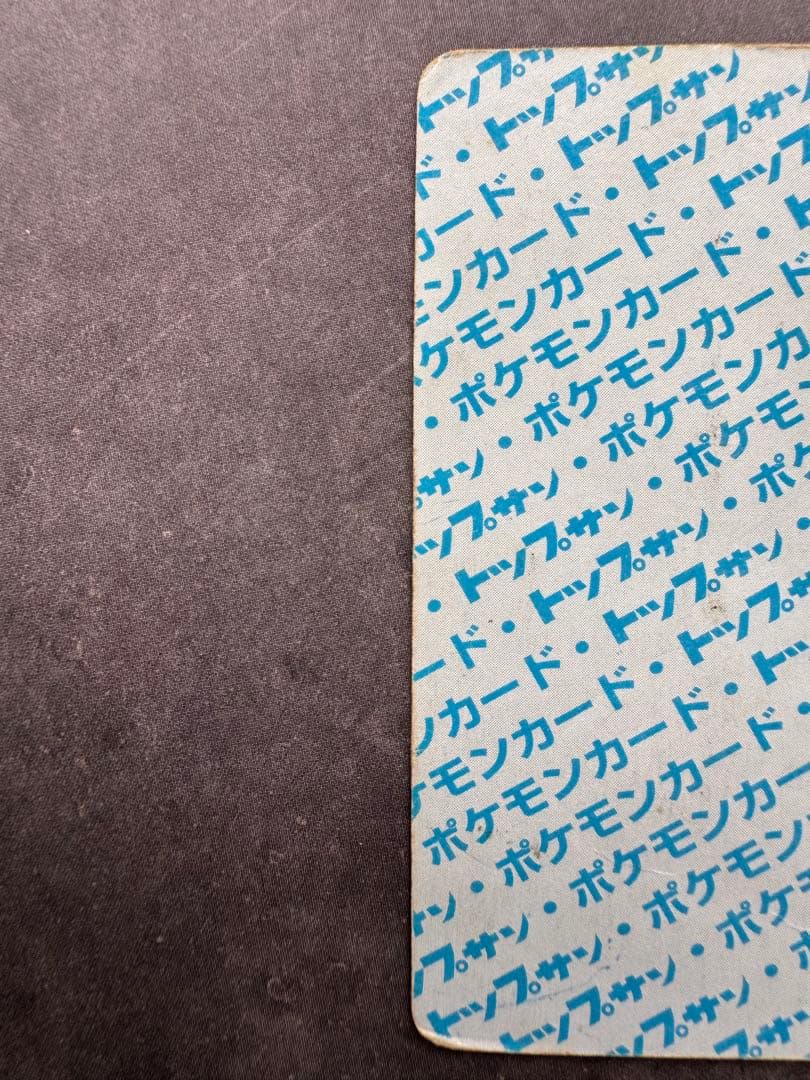 トップサン
トップサン
ド・トップサン
カード・トップサン
モンカード・トップ
ケモンカード・ト
・ポケモンカード・
サン・ポケモンカード
トップサン・ポケモンカ
・トップサン・ポケモン
ード・トップサン・ポケ
ンカード・トップサン・
ケモンカード・トップサ
ポケモンカード・トッ
サン・ポケモンカード・
プサン・ポケモンカー
トップサン・ポケモン
トップサン・ポケ
トップサン・ポ